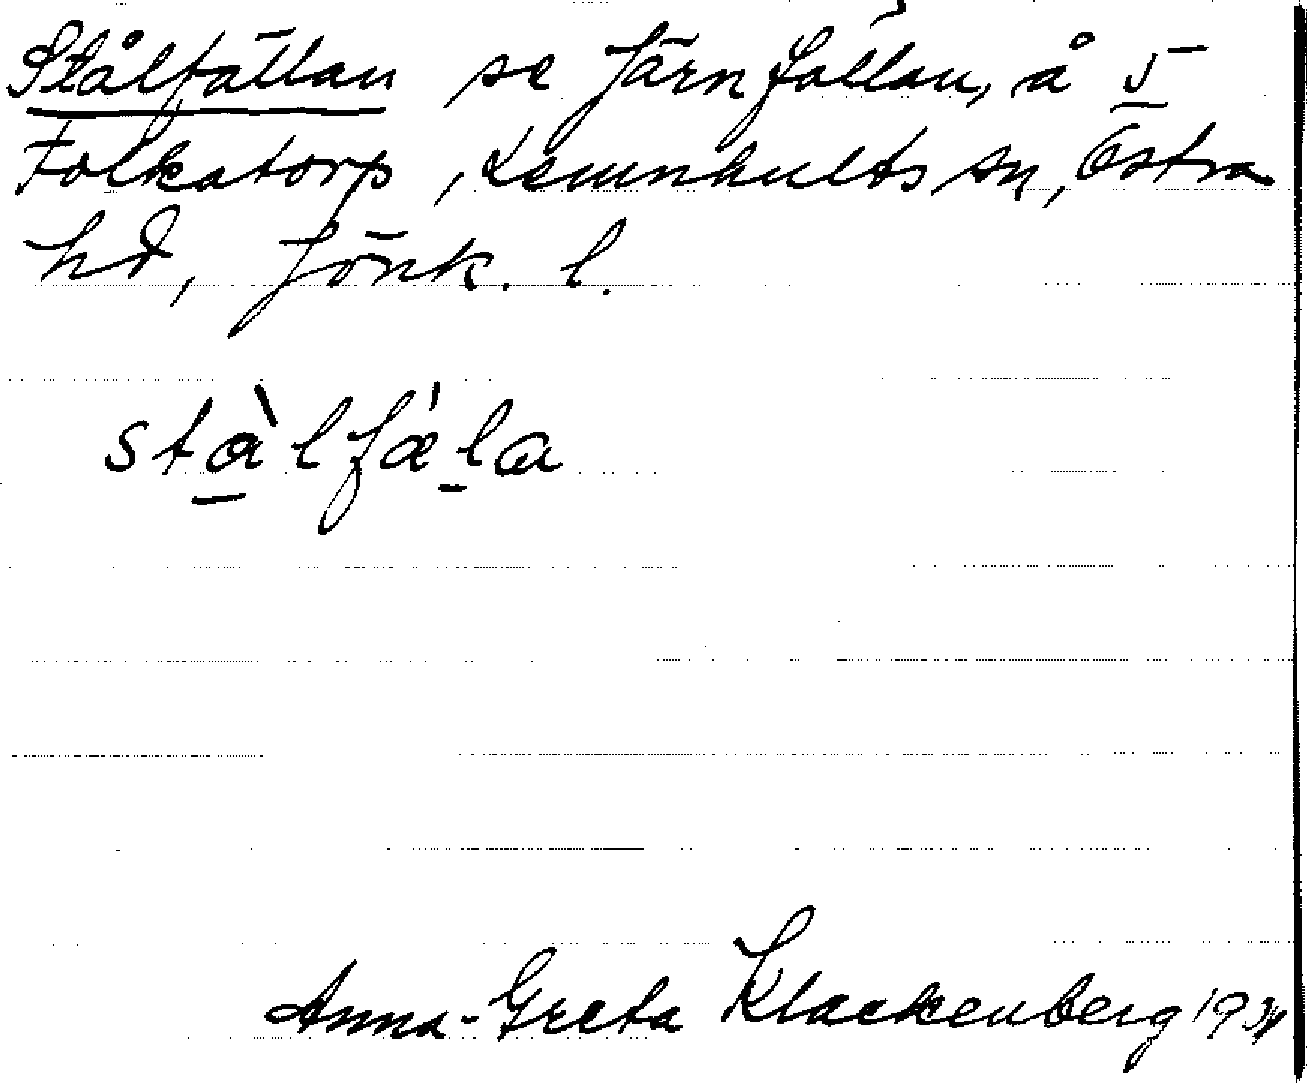 Stålfällan se Järnfällan, å 5
Folkatorp, Lemnhults sn, Östra
hd, Jönk. l.
stàlfä́la
Anna-Greta Klackenberg 1934